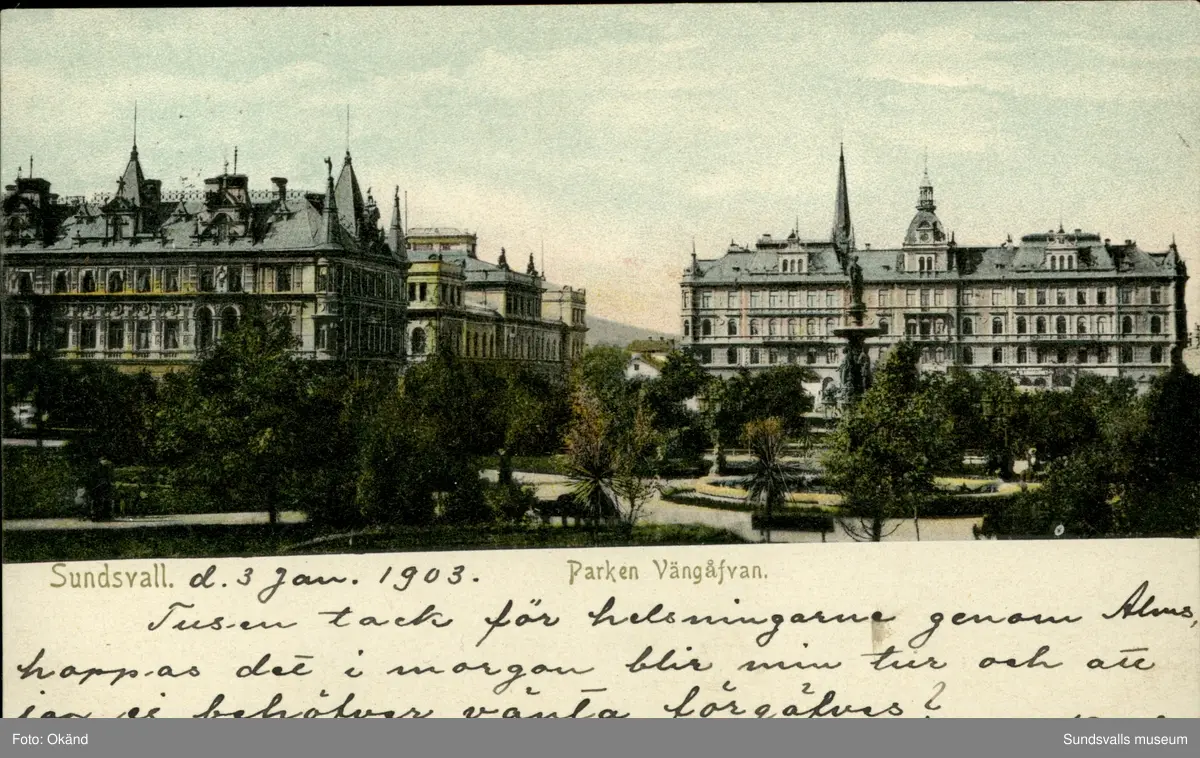 Sundsvall. d. 3 Jan. 1903. Parken Vängåfvan.
Tusen tack för helsningarne genom Alms,
hoppas det i morgon blir min tur och att
jag ej behöfver vänta förgäfves?
Foto: Okänd Sundsvalls museum